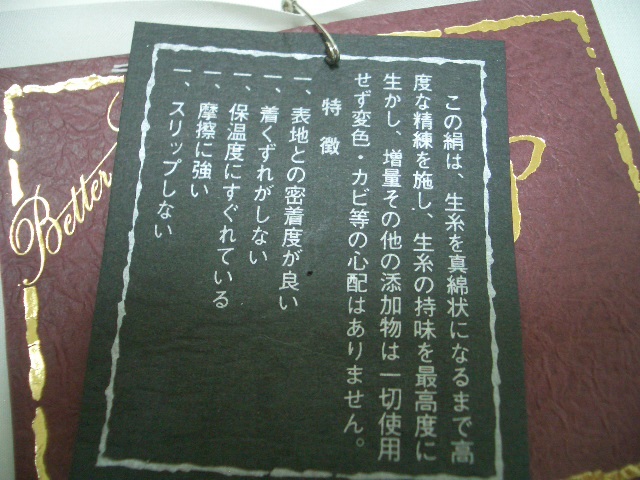 この絹は、生糸を真綿状になるまで高
度な精練を施し、生糸の持味を最高度に
生かし、増量その他の添加物は一切使用
せず変色・カビ等の心配はありません。
特徴
一、表地との密着度が良い
一、着くずれがしない
一、保温度にすぐれている
一、摩擦に強い
一、スリップしない
Better